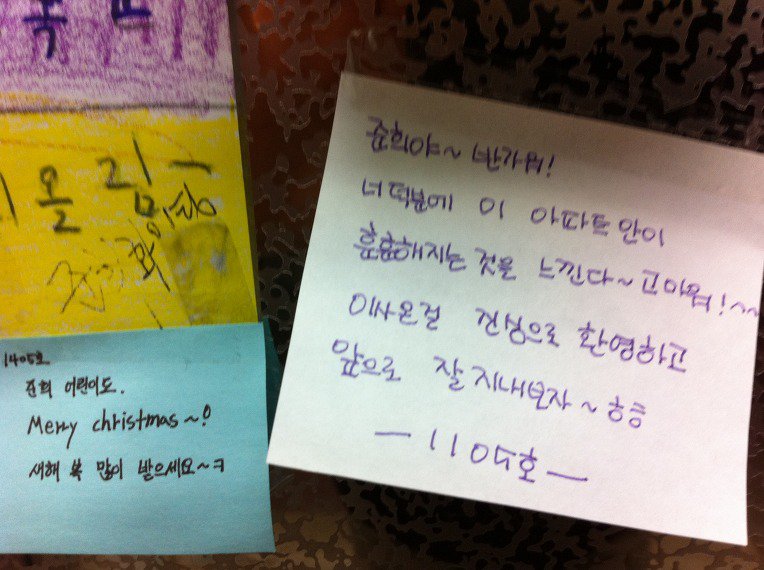 올림
1405호
준희 어린이도.
Merry christmas~!
새해 복 많이 받으세요~ㅋ
준희야~ 반가워!
너 덕분에 이 아파트 안이
훈훈해지는 것을 느낀다~ 고마워!~~
이사온걸 진심으로 환영하고
앞으로 잘 지내보자~ ㅎㅎ
— 1105호 —